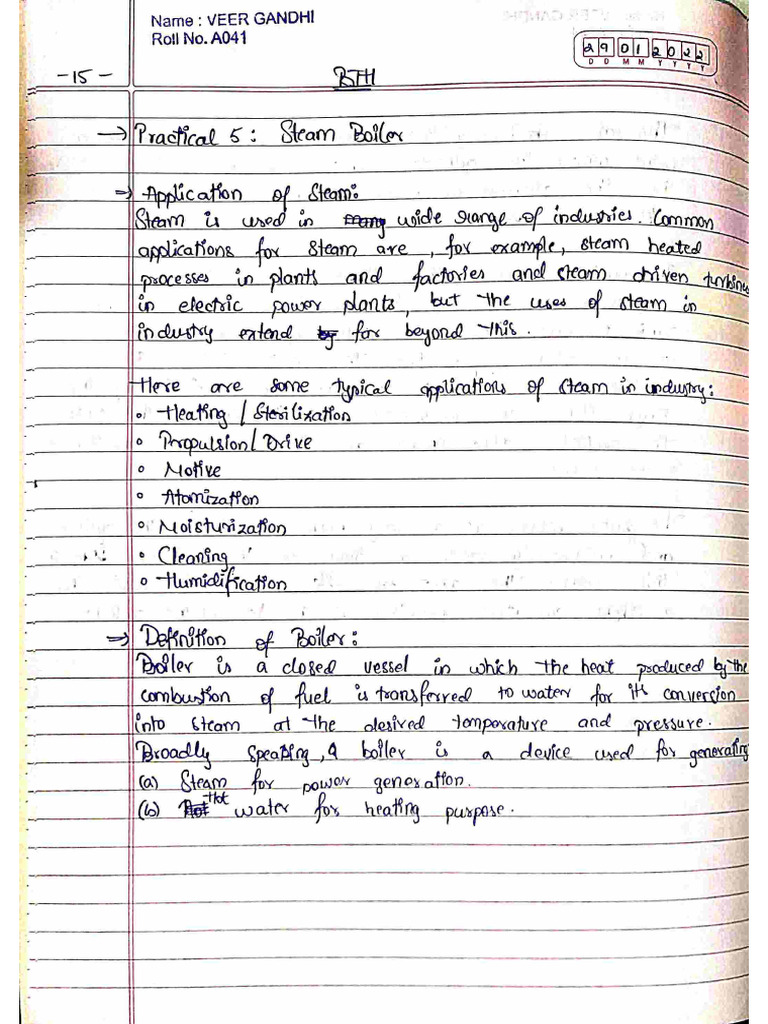 Name : VEER GANDHI
Roll No. A041
29012022
D D M M Y Y Y Y
-15-
→ Practical 5: Steam Boiler
⇒ Application of Steam:
Steam is used in many wide range of industries. Common
applications for steam are, for example, steam heated
processes in plants and factories and steam driven turbines
in electric power plants, but the uses of steam in
industry extend by for beyond this.
Here are some typical applications of steam in industry:
° Heating / Sterilization
° Propulsion / Drive
° Motive
° Atomization
° Moisturization
° Cleaning
° Humidification
⇒ Definition of Boiler:
Boiler is a closed vessel in which the heat produced by the
combustion of fuel is transferred to water for its conversion
into steam at the desired temperature and pressure.
Broadly speaking, a boiler is a device used for generating
(a) Steam for power generation.
(b) Hot water for heating purpose.